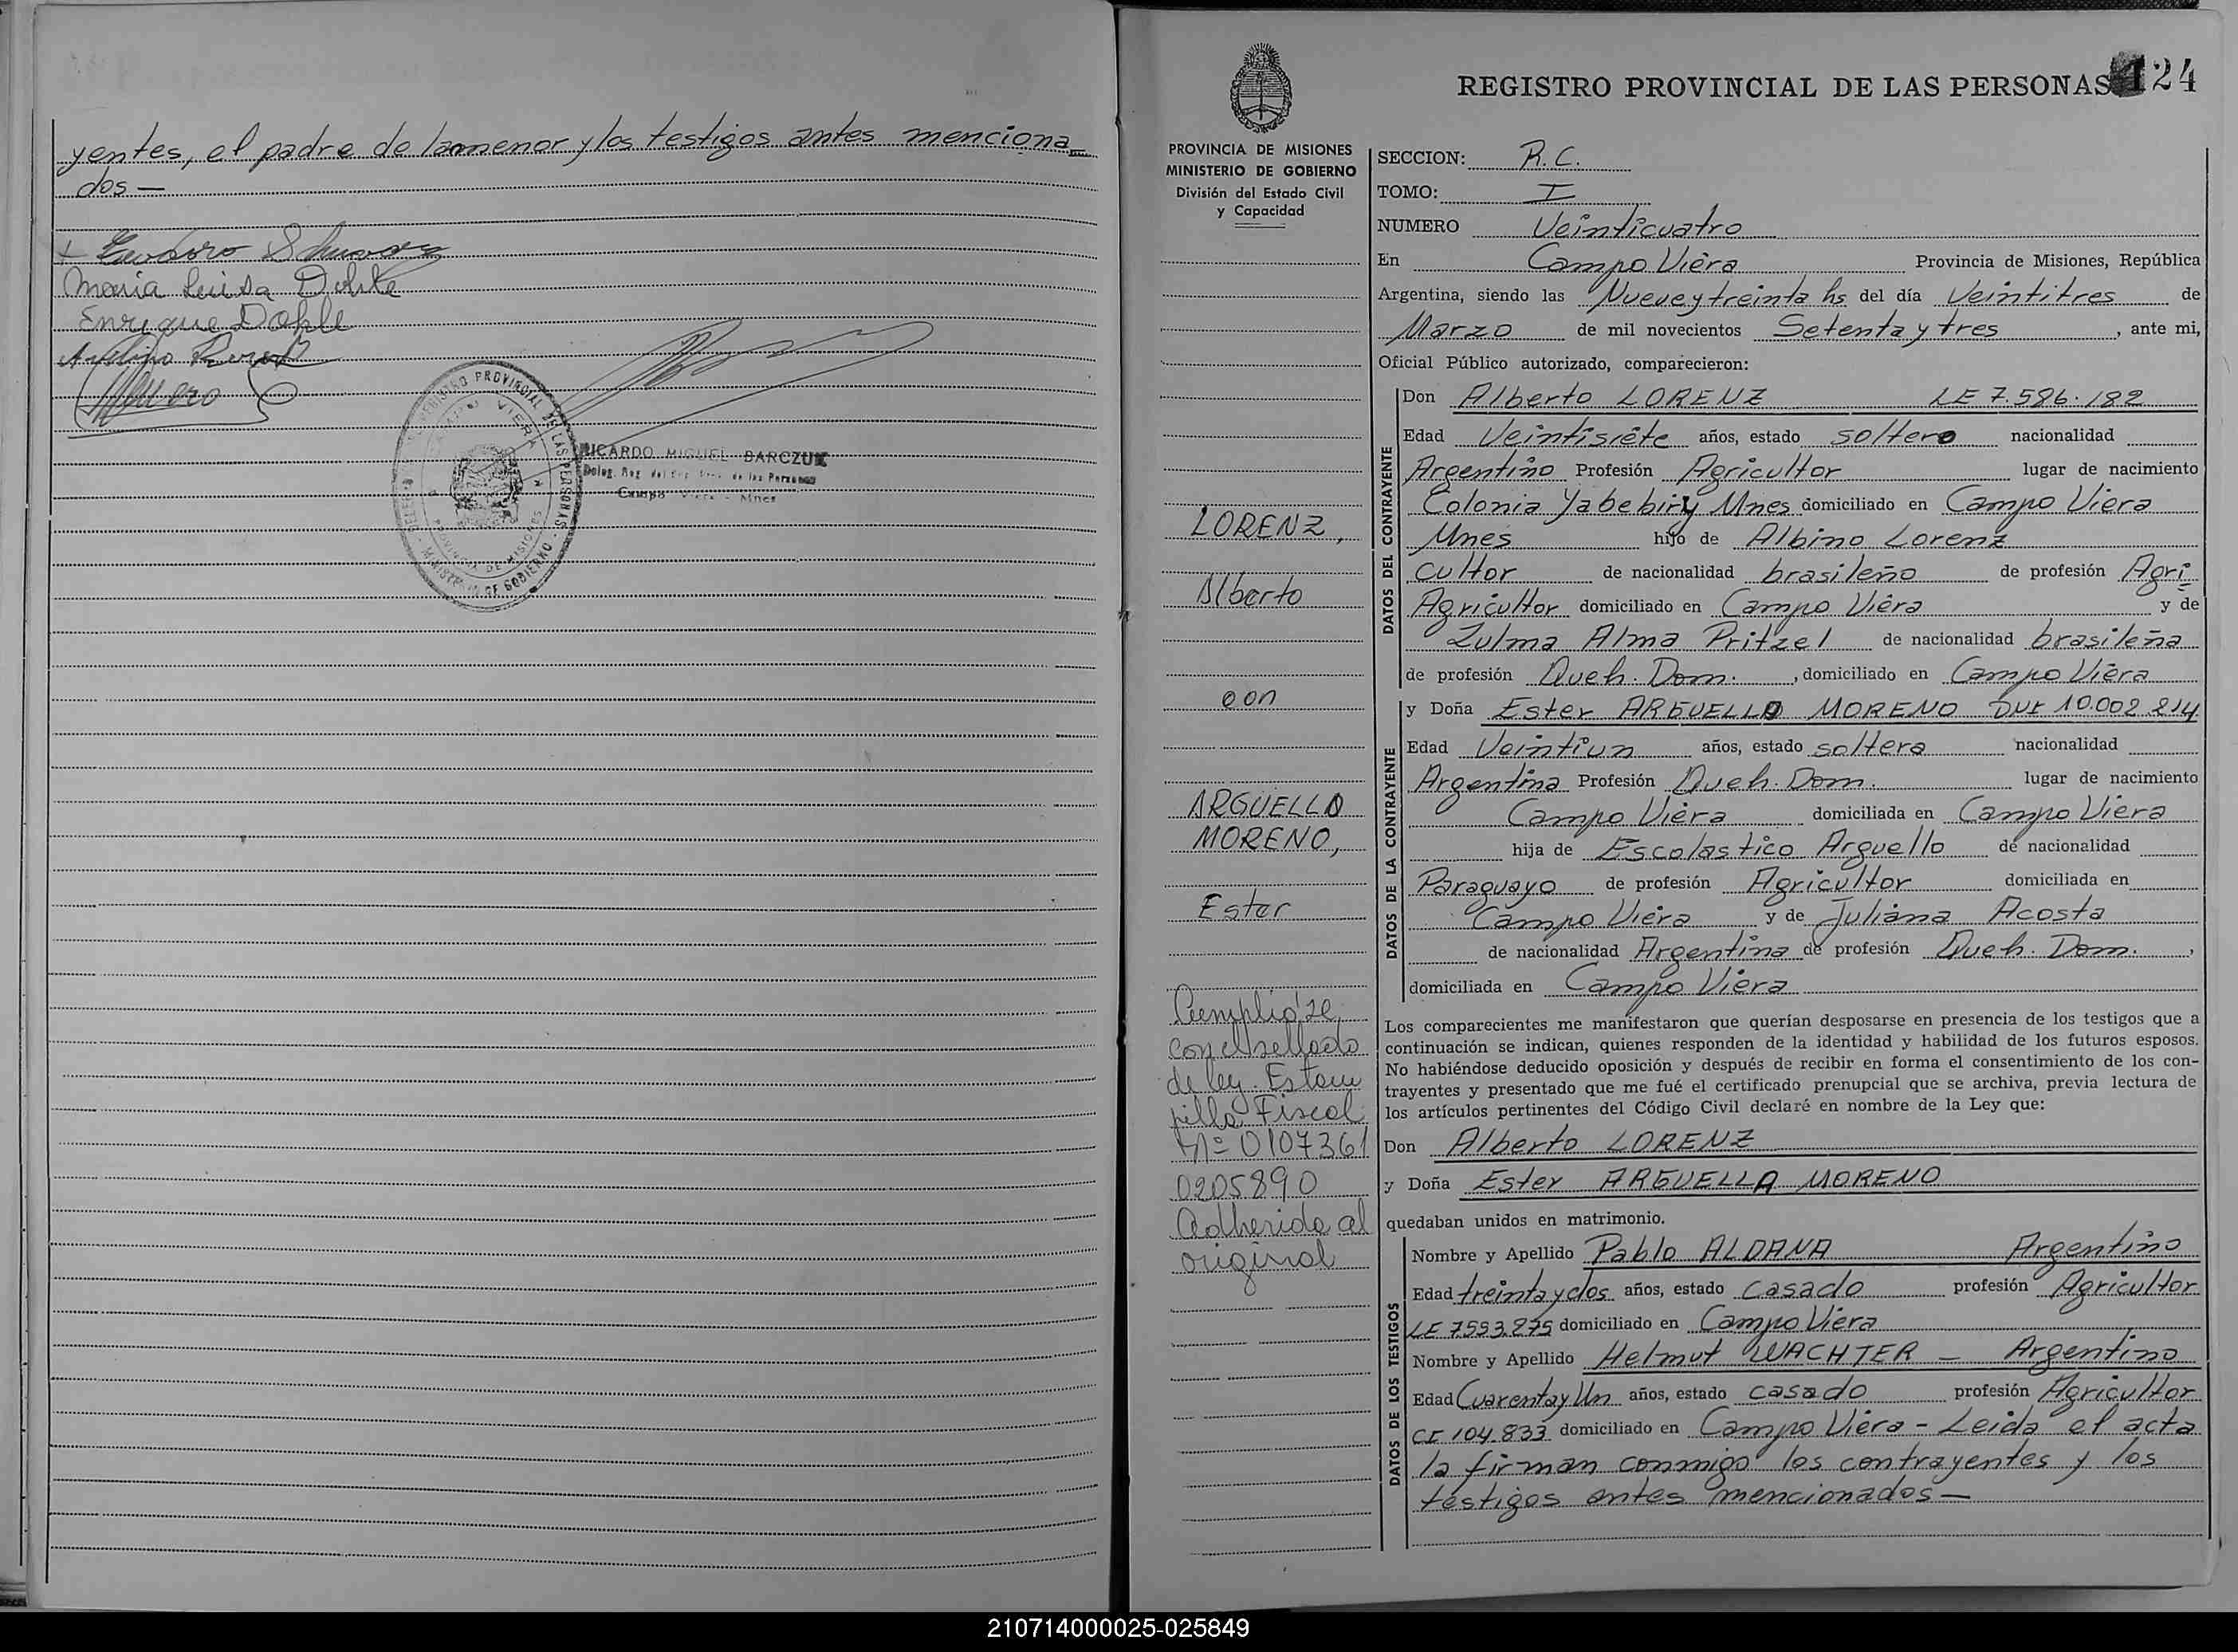 yentes, el padre de la menor y los testigos antes menciona_
dos —
Maria Luisa Dohle
Enrique Dohle
REGISTRO PROVINCIAL DE LAS PERSONAS
CAMPO VIERA
PROVINCIA DE MISIONES
MINISTERIO DE GOBIERNO
RICARDO MIGUEL BARCZUK
de las Personas
Campo Viera - Mnes
PROVINCIA DE MISIONES
MINISTERIO DE GOBIERNO
División del Estado Civil
y Capacidad
LORENZ,
Alberto
con
ARGUELLO
MORENO,
Ester
Cumplióse
con el sellado
de ley. Estam
pilla Fiscal
Nº 0107361
0205890
Adherida al
original
REGISTRO PROVINCIAL DE LAS PERSONAS 124
SECCION: R.C.
TOMO: I
NUMERO Veinticuatro
En Campo Viera Provincia de Misiones, República
Argentina, siendo las Nueve y treinta hs del día Veintitres de
Marzo de mil novecientos Setenta y tres, ante mi,
Oficial Público autorizado, comparecieron:
DATOS DEL CONTRAYENTE
Don Alberto LORENZ LE 7.586.182
Edad Veintisiete años, estado soltero nacionalidad
Argentino Profesión Agricultor lugar de nacimiento
Colonia Yabebiry Mnes domiciliado en Campo Viera
Mnes hijo de Albino Lorenz
cultor de nacionalidad brasileño de profesión Agri_
Agricultor domiciliado en Campo Viera y de
Zulma Alma Pritzel de nacionalidad brasileña
de profesión Queh. Dom., domiciliado en Campo Viera
DATOS DE LA CONTRAYENTE
y Doña Ester ARGUELLO MORENO DNI 10.002.214
Edad Veintiun años, estado soltera nacionalidad
Argentina Profesión Queh. Dom. lugar de nacimiento
Campo Viera domiciliada en Campo Viera
hija de Escolastico Arguello de nacionalidad
Paraguayo de profesión Agricultor domiciliada en
Campo Viera y de Juliana Acosta
de nacionalidad Argentina de profesión Queh. Dom.,
domiciliada en Campo Viera
Los comparecientes me manifestaron que querían desposarse en presencia de los testigos que a
continuación se indican, quienes responden de la identidad y habilidad de los futuros esposos.
No habiéndose deducido oposición y después de recibir en forma el consentimiento de los con-
trayentes y presentado que me fué el certificado prenupcial que se archiva, previa lectura de
los artículos pertinentes del Código Civil declaré en nombre de la Ley que:
Don Alberto LORENZ
y Doña Ester ARGUELLA MORENO
quedaban unidos en matrimonio.
DATOS DE LOS TESTIGOS
Nombre y Apellido Pablo ALDANA Argentino
Edad treinta y dos años, estado casado profesión Agricultor
LE 7.593.875 domiciliado en Campo Viera
Nombre y Apellido Helmut WACHTER — Argentino
Edad Cuarenta y Un años, estado casado profesión Agricultor
CI 104.833 domiciliado en Campo Viera - Leida el acta
la firman conmigo los contrayentes y los
testigos antes mencionados —
210714000025-025849